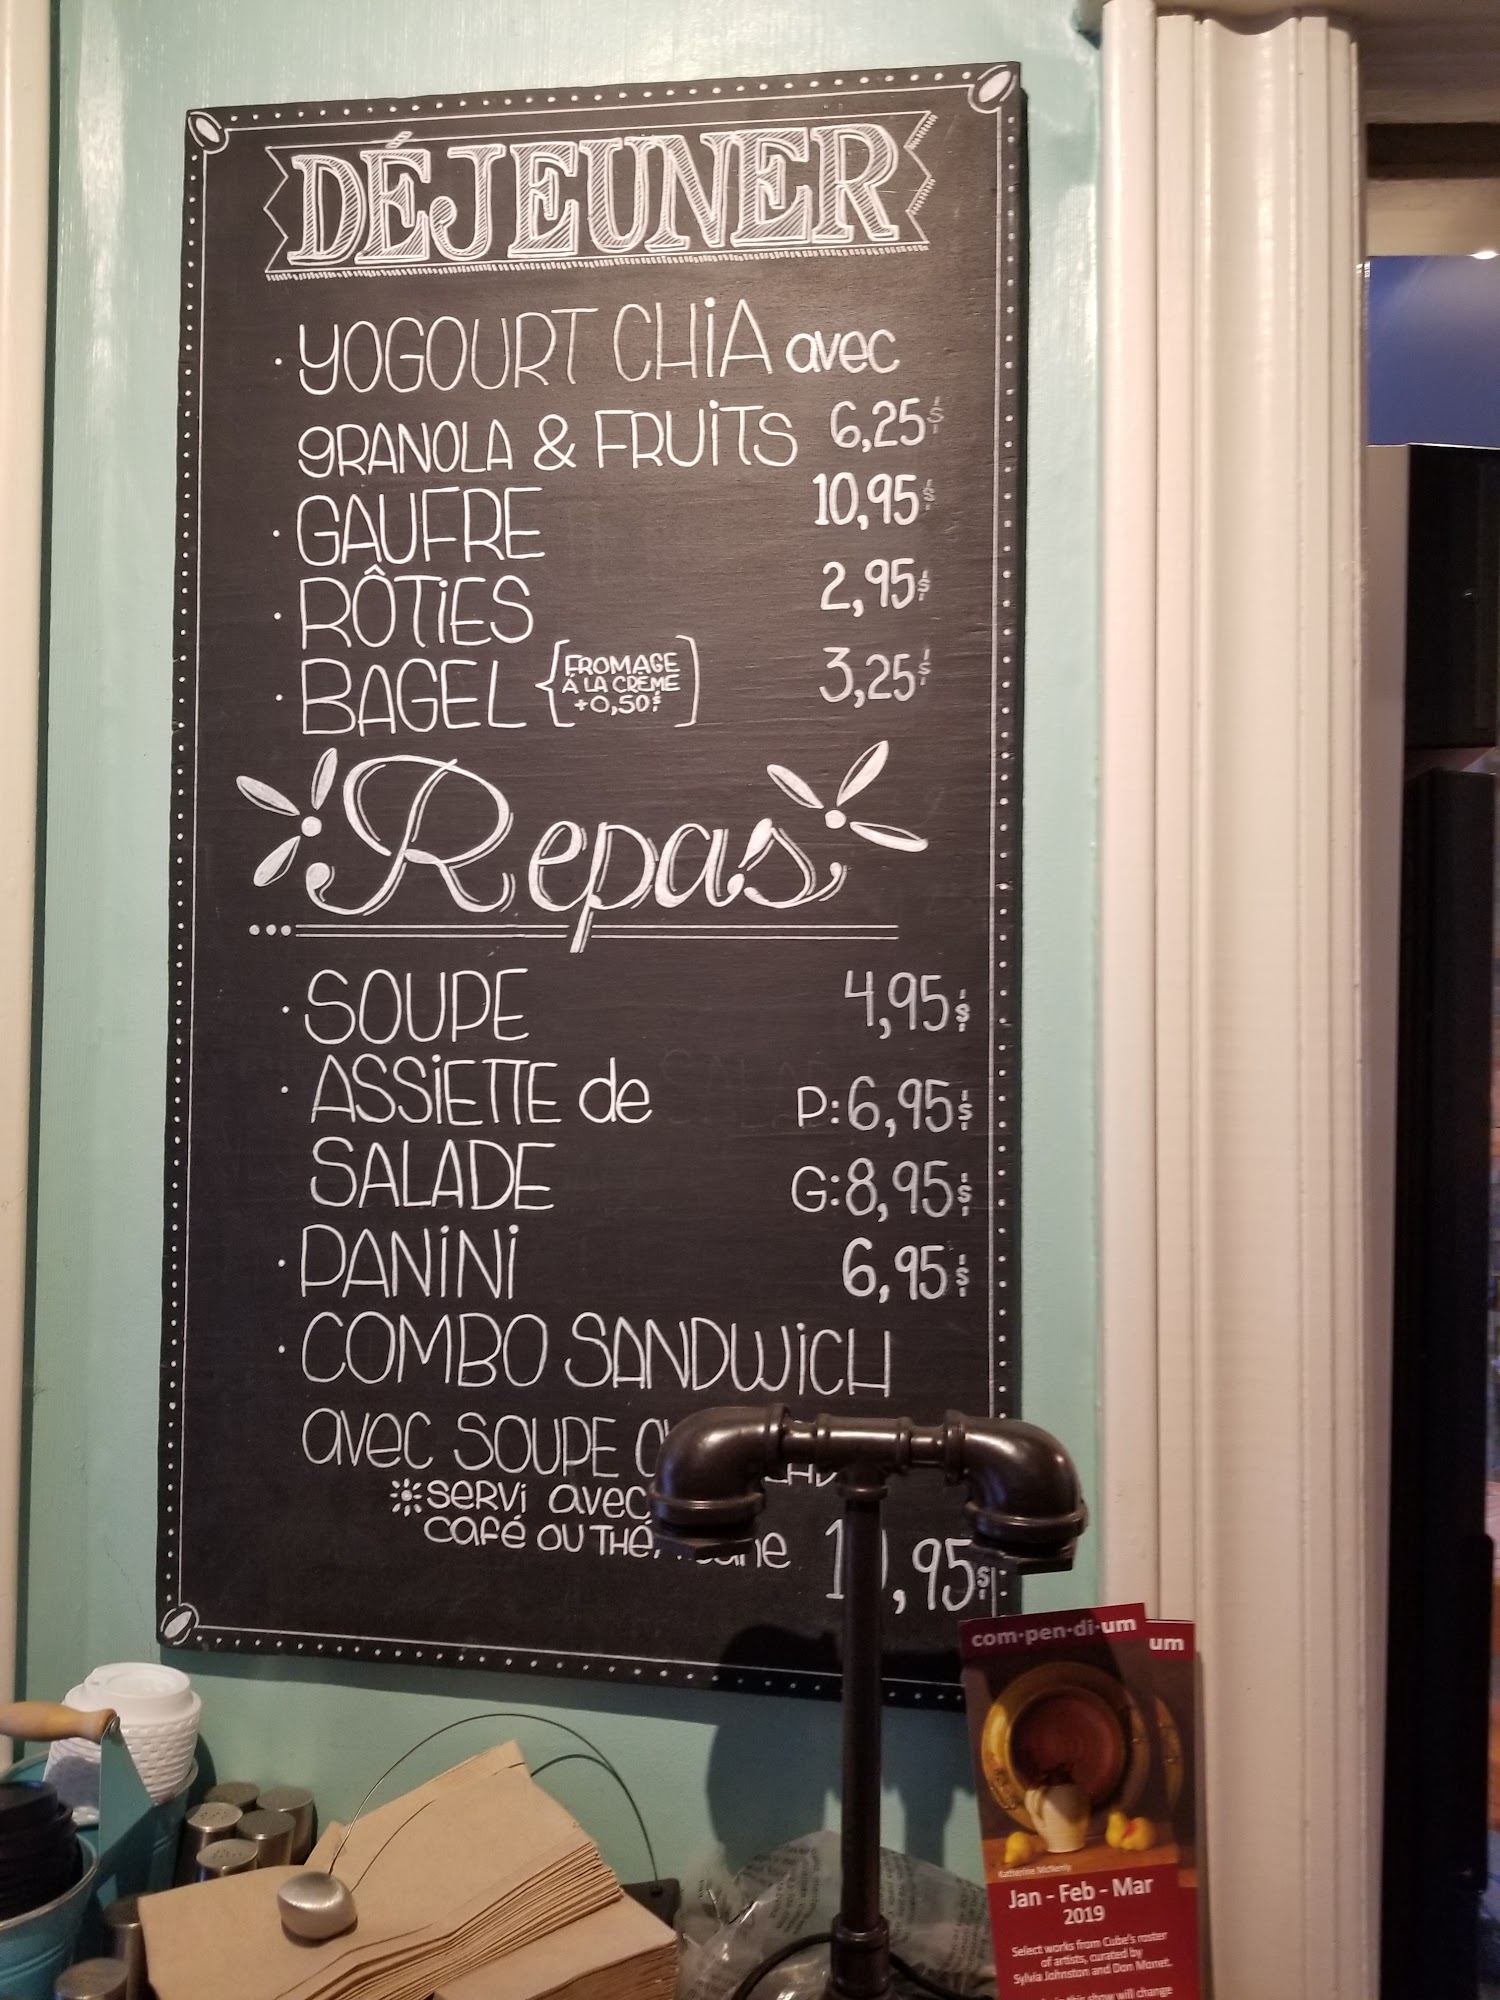 DÉJEUNER
· YOGOURT CHiA avec
gRANOLA & FRUiTS 6,25$
· GAUFRE 10,95$
· RÔTiES 2,95$
· BAGEL {FROMAGE À LA CRÈME +0,50$} 3,25$
Repas
· SOUPE 4,95$
· ASSiETTE de P:6,95$
SALADE G:8,95$
· PANiNi 6,95$
· COMBO SANDWiCH
avec SOUPE
servi avec
café ou THÉ,
,95$
com·pen·di·um
um
Katherine McNenly
Jan - Feb - Mar
2019
Select works from Cube's roster
of artists, curated by
Sylvia Johnston and Don Monet.
in this show will change